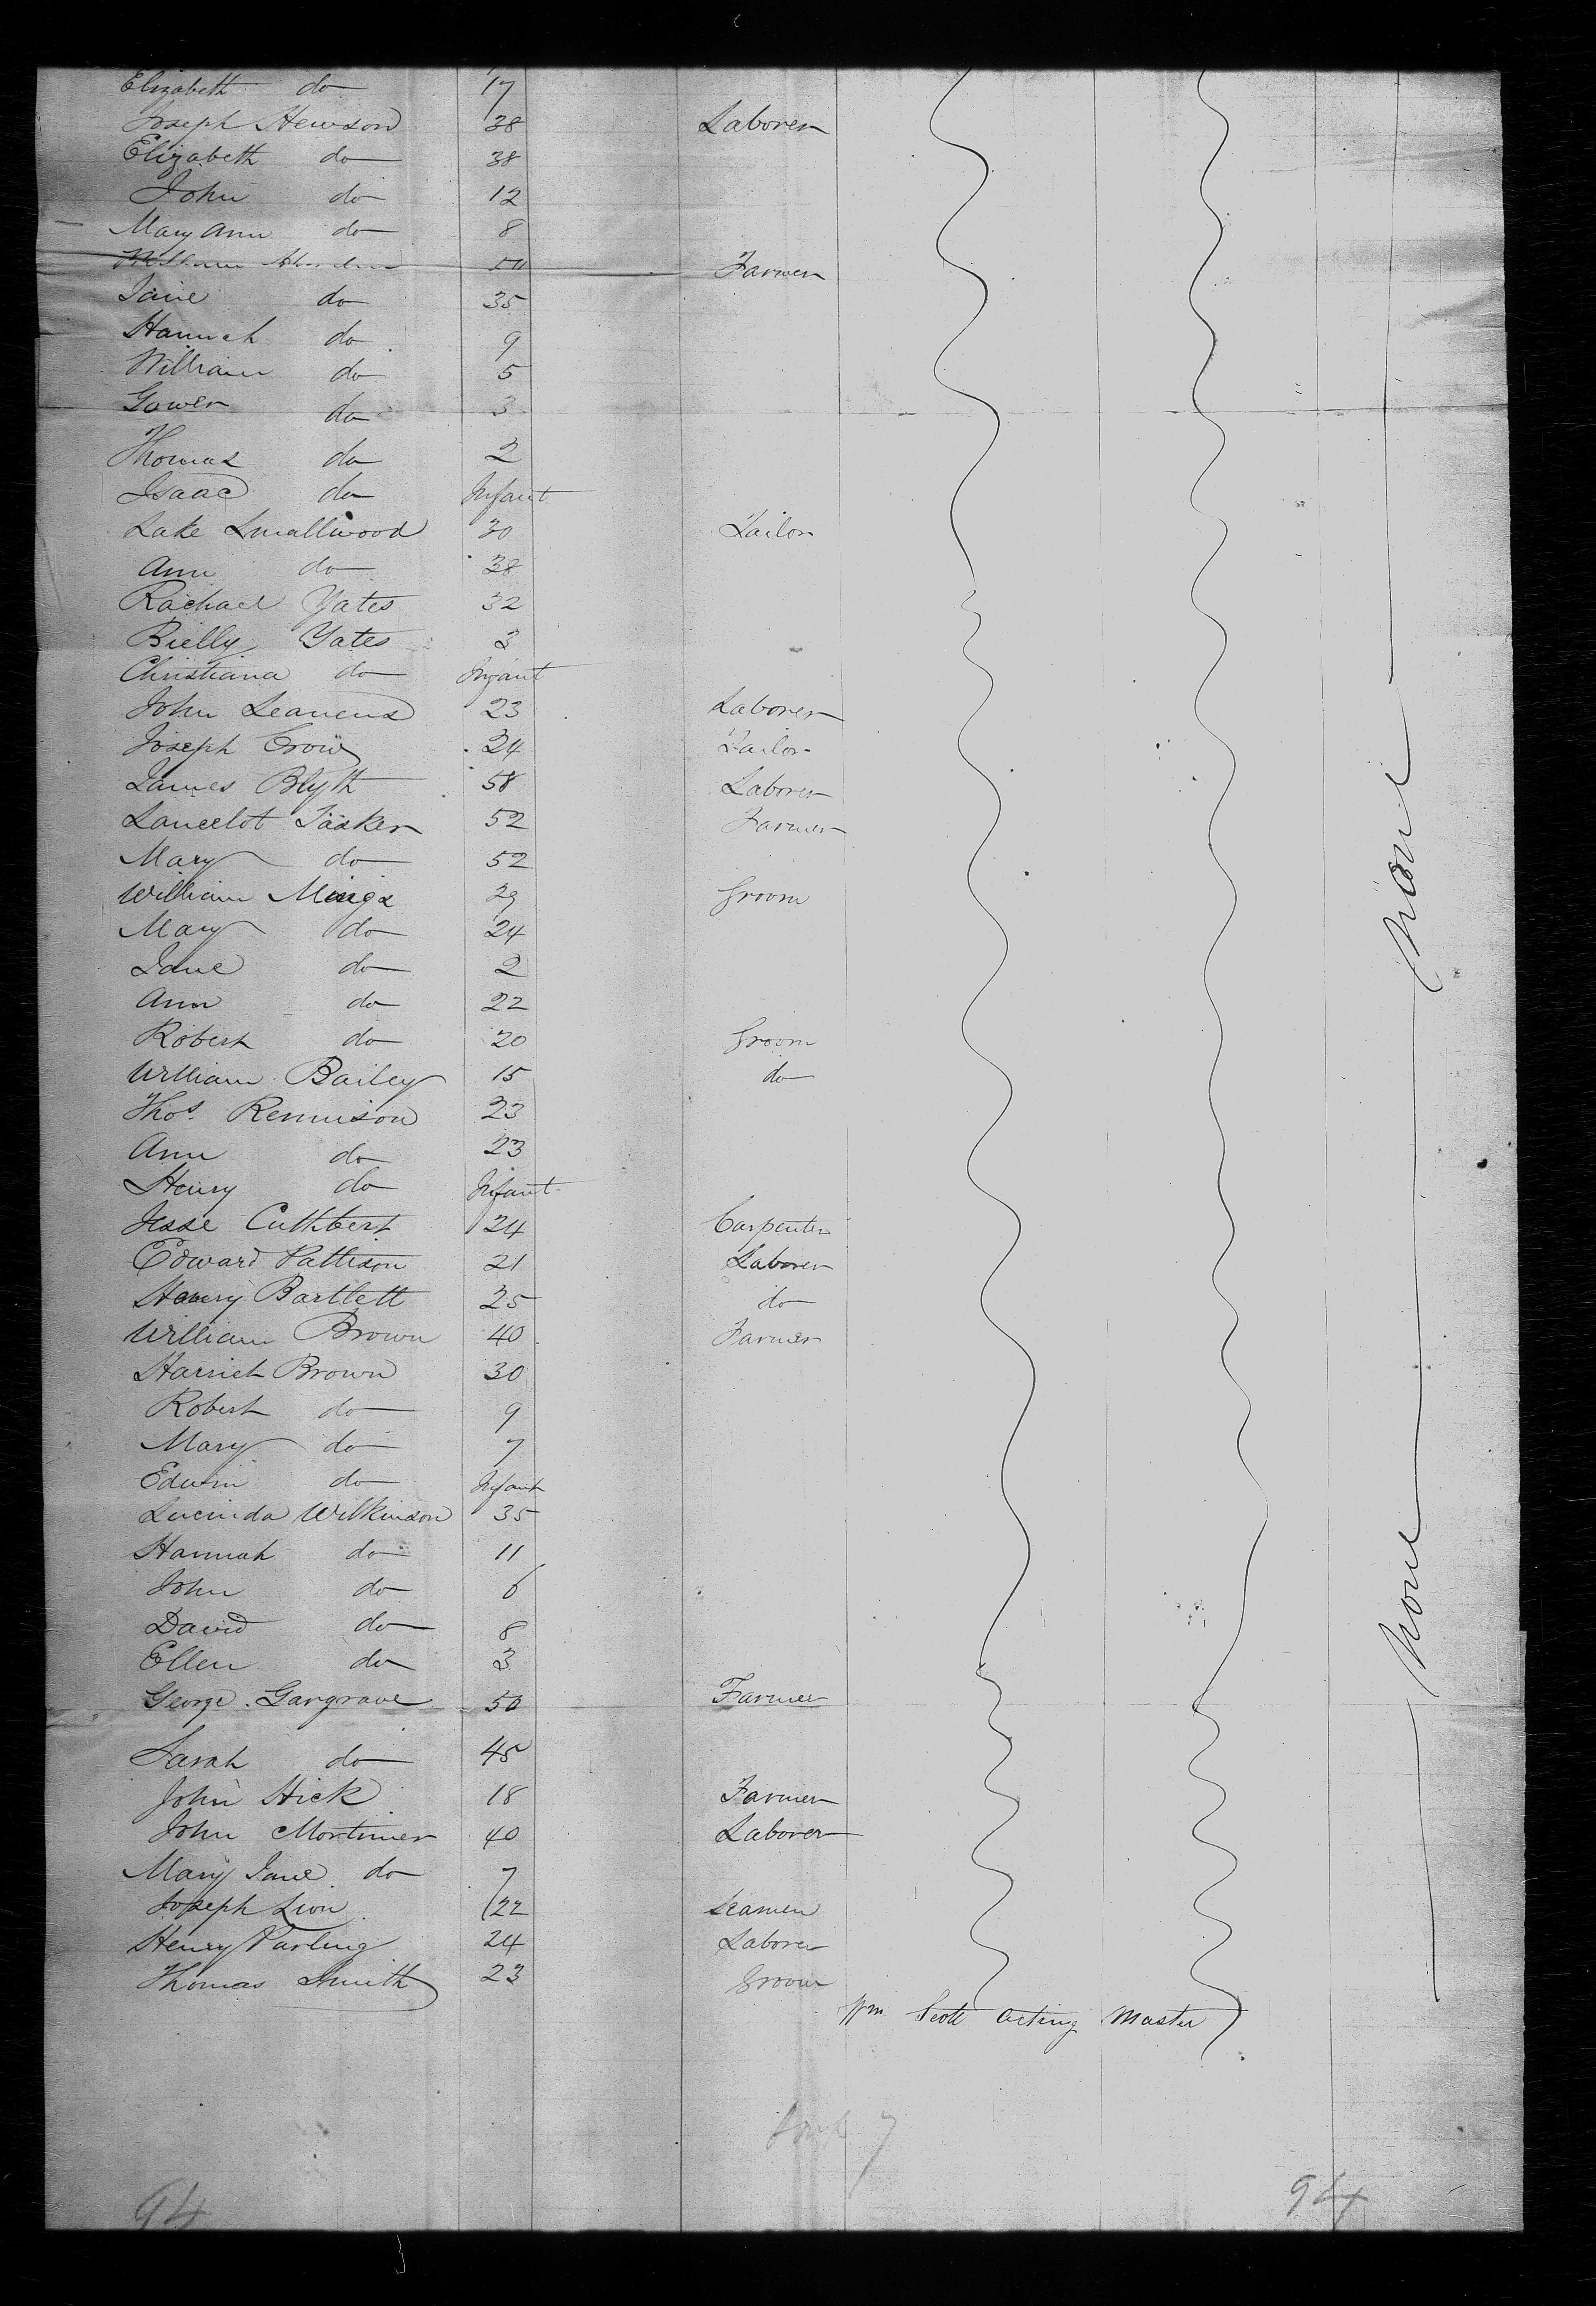 Elizabeth do 17
Joseph Hewson 38 Laborer
Elizabeth do 38
John do 12
Mary Ann do 8
William 50 Farmer
Jane do 35
Hannah do 9
William do 5
Gower do 3
Thomas do 2
Isaac do Infant
Lake Smallwood 30 Tailor
Ann do 38
Rachael Yates 32
Bielly Yates 3
Christiana do Infant
John Leavens 23 Laborer
Joseph Crow 24 Tailor
James Blyth 58 Laborer
Lancelot Tasker 52 Farmer
Mary do 52
William Mings 29 Groom
Mary do 24
Jane do 2
Ann do 22
Robert do 20 Groom
William Bailey 15 do
Thos. Rennison 23
Ann do 23
Henry do Infant
Jesse Cuthbert 24 Carpenter
Edward Pattison 21 Laborer
Henry Bartlett 25 do
William Brown 40 Farmer
Harriet Brown 30
Robert do 9
Mary do 7
Edwin do Infant
Lucinda Wilkinson 35
Hannah do 11
John do 6
David do 8
Ellen do 3
George Gargrave 50 Farmer
Sarah do 45
John Hick 18 Farmer
John Mortimer 40 Laborer
Mary Jane do 7
Joseph Lion 22 Seamen
Henry Parling 24 Laborer
Thomas Smith 23 Groom
Wm Scott Acting Master
None
None
94
94